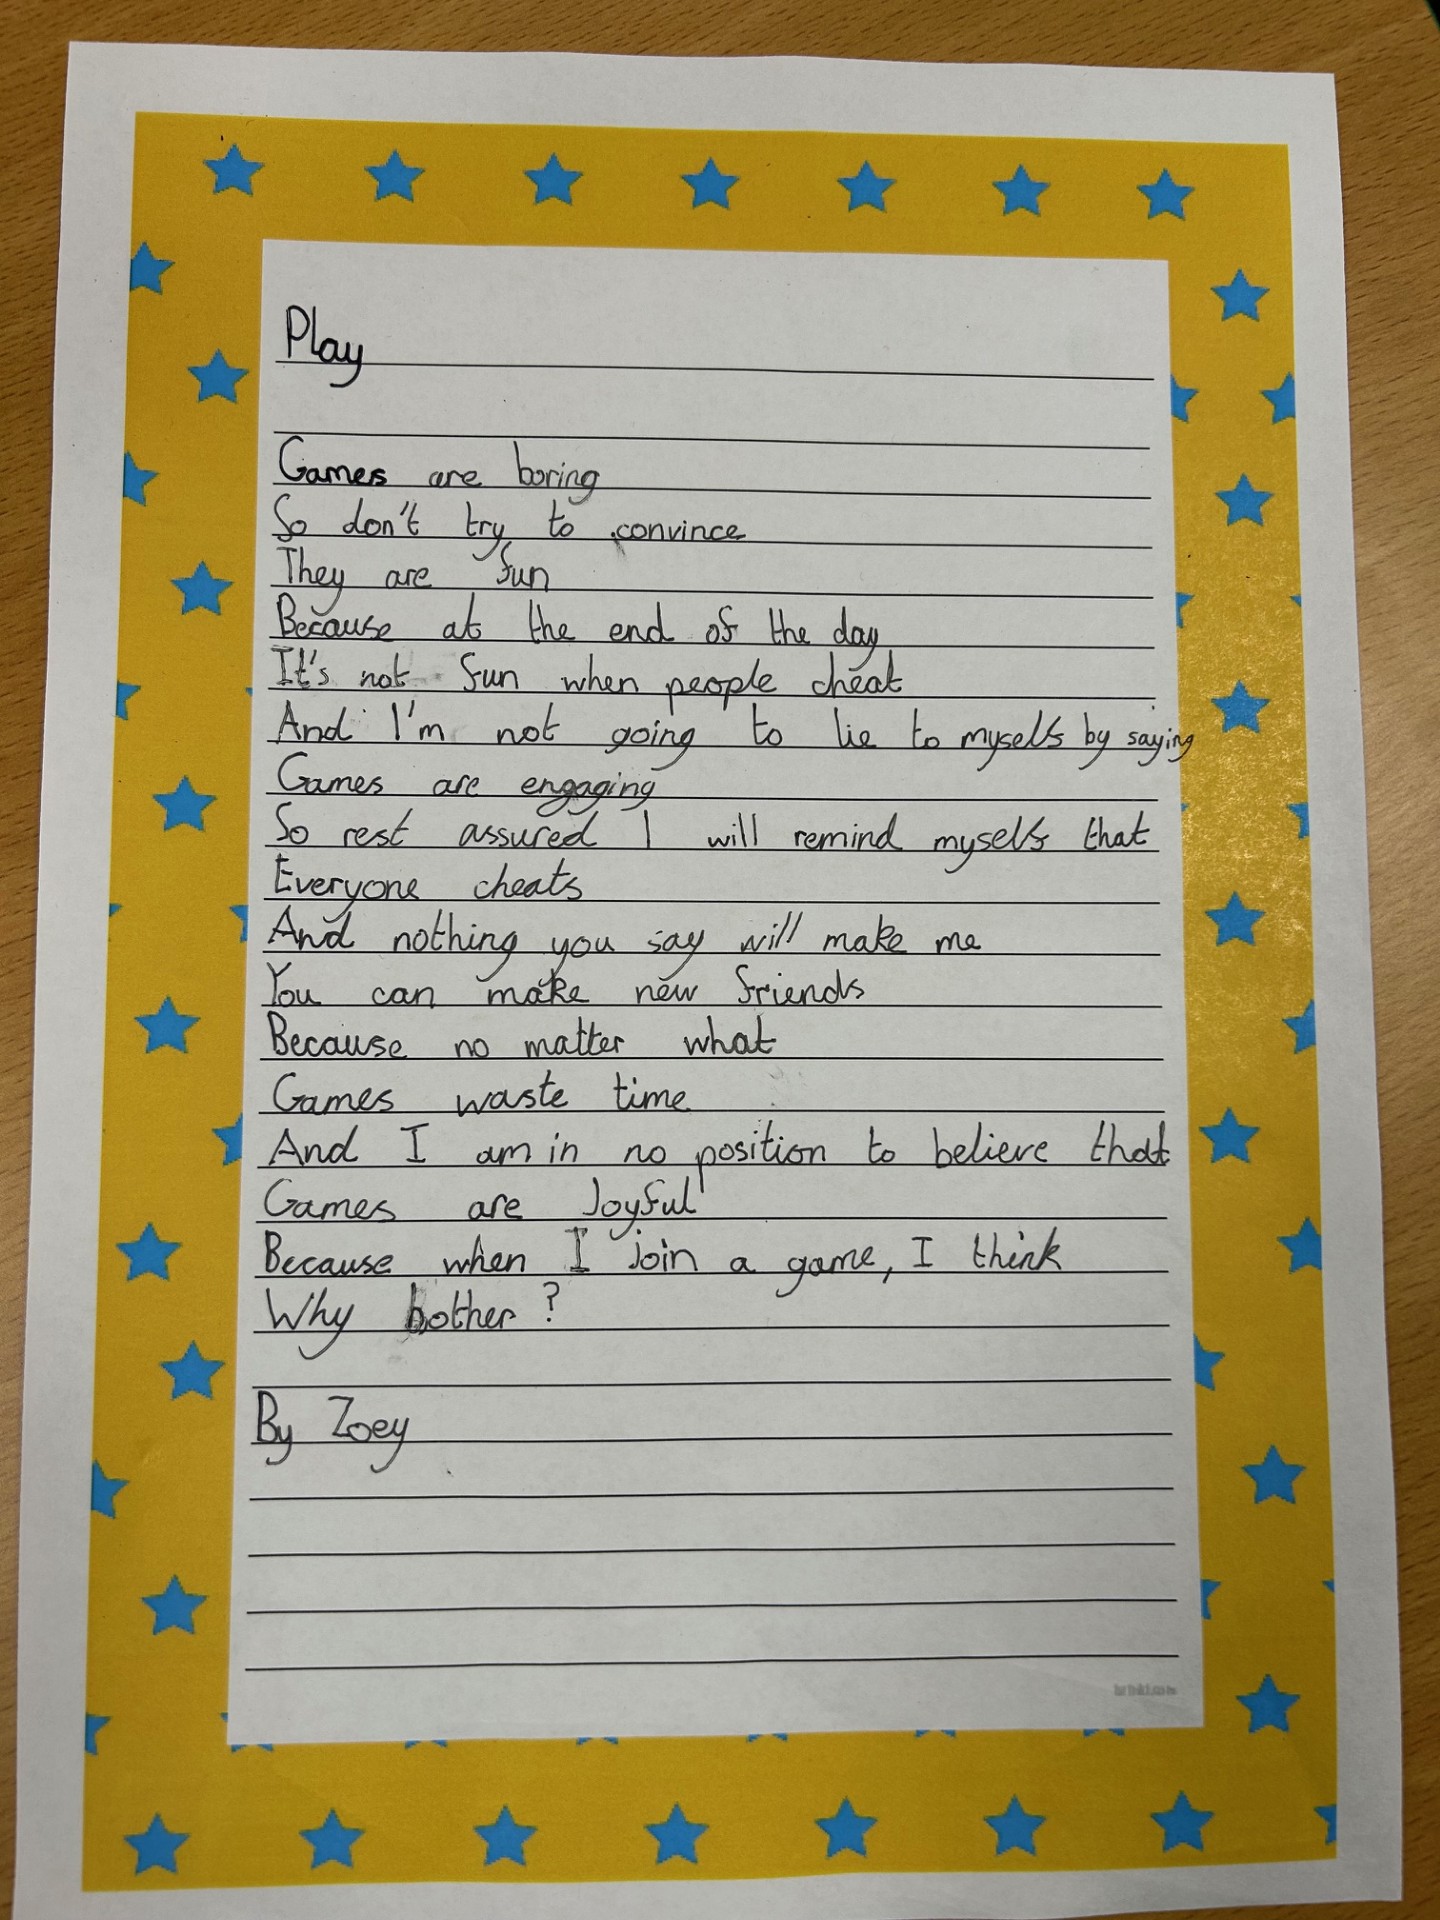 Play
Games are boring
So don't try to convince
They are fun
Because at the end of the day
It's not fun when people cheat
And I'm not going to lie to myself by saying
Games are engaging
So rest assured I will remind myself that
Everyone cheats
And nothing you say will make me
You can make new friends
Because no matter what
Games waste time
And I am in no position to believe that
Games are Joyful
Because when I join a game, I think
Why bother?
By Zoey